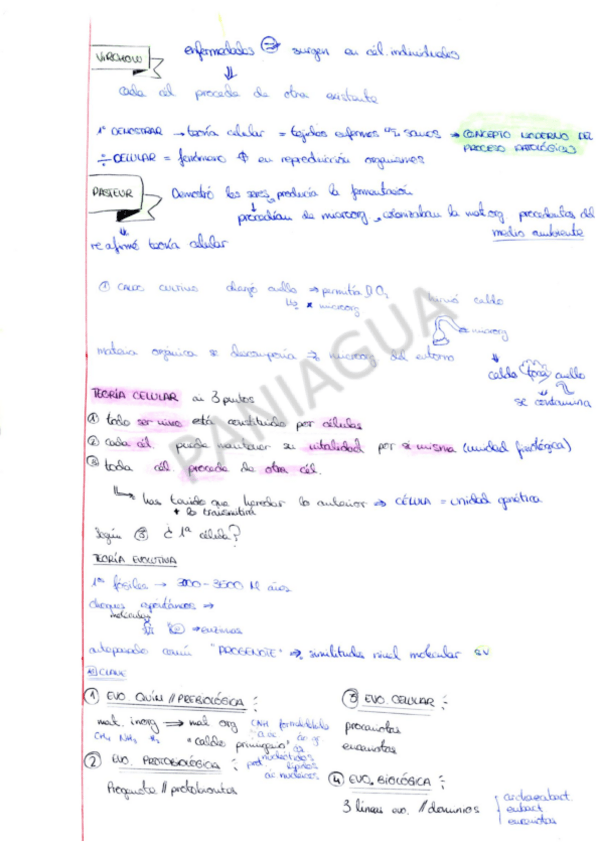 VIRCHOW enfermedades ⇒ surgen en cél. individuales
⇓
cada cél procede de otra existente
1º DEMOSTRAR → teoría celular = tejidos enfermos sanos ⇒ CONCEPTO MODERNO DEL PROCESO PATOLÓGICO
÷ CELULAR = fenómeno en reproducción organismos
PASTEUR Demostró los seres producía la fermentación
↓
procedían de microorg, colonizaban la mat org procedentes del medio ambiente
⇓
reafirmó teoría celular
① CALDO CULTIVO cuello ⇒ permitía O₂ hirvió caldo
↳ x microorg
microorg
materia orgánica se descomponía → microorg del entorno
↓
caldo cuello
se contamina
TEORÍA CELULAR en 3 puntos
① todo ser vivo está constituido por células
② cada cél. puede mantener su vitalidad por sí misma (unidad fisiológica)
③ toda cél procede de otra cél.
↳ has tenido que heredar lo anterior ⇒ CÉLULA = unidad genética
+ lo transmitirá
Según ③ ¿1ª célula?
TEORÍA EVOLUTIVA
1ᵒˢ fósiles → 3000-3500 M años
choques espontáneos ⇒
moléculas
⇒ enzimas
antepasado común "PROGENOTE" ⇒ similitudes nivel molecular
CLAVE
① EVO QUÍM // PREBIOLÓGICA:
mat. inorg ⟹ mat org CNH formaldehído
CH₄ NH₃ H₂ "caldo primigenio"
nucleótidos
lípidos
ác nucleicos
② EVO. PROTOBIOLÓGICA:
Progenote // protobiontes
③ EVO. CELULAR:
procariotas
eucariotas
④ EVO. BIOLÓGICA:
3 líneas evo. // dominios
archaeabact.
eubact
eucariotas
PANIAGUA